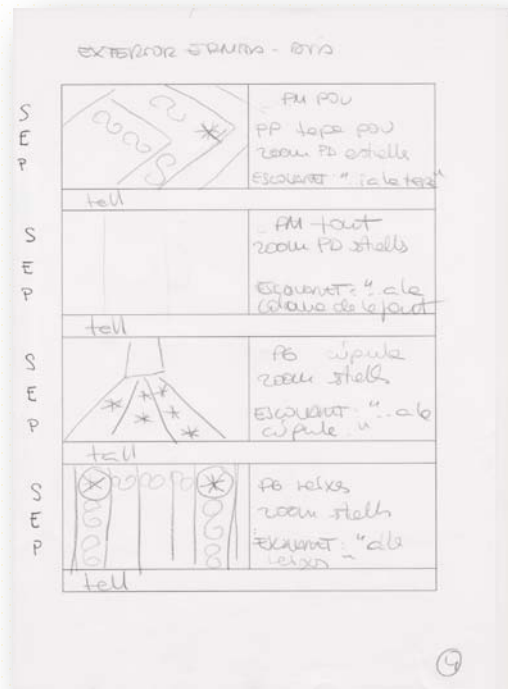 EXTERIOR ERMITA - DIA
S
E
P
PM POU
PP tapa pou
zoom PD estells
ESCOLANET: "
tall
S
E
P
PM font
zoom PD stells
ESCOLANET: "..a la
columna de la font
tall
S
E
P
PG cúpula
zoom stells
ESCOLANET: "..a la
cúpula."
tall
S
E
P
PG reixes
zoom stells
ESCOLANET: "a les
reixes"
tall
4